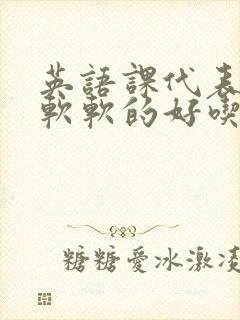 英語課代表
軟軟的好喫
糖糖愛冰激凌